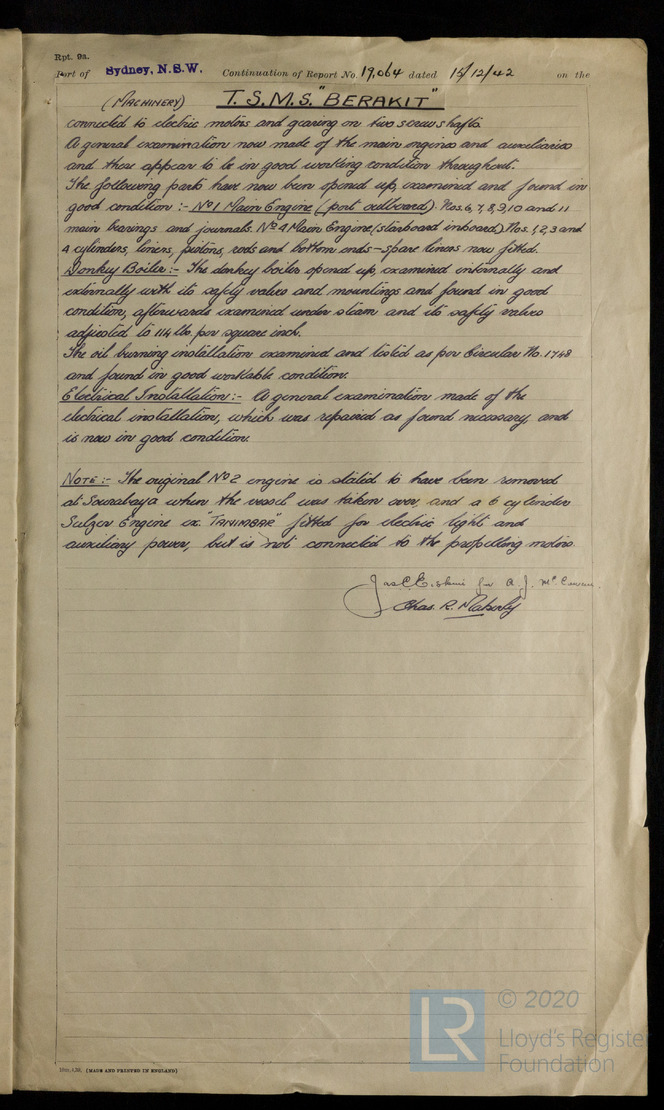 Rpt. 9a.
Port of Sydney, N.S.W. Continuation of Report No. 19,064 dated 15/12/42 on the
(MACHINERY) T.S.M.S. "BERAKIT"
connected to electric motors and gearing on two screwshafts.
A general examination now made of the main engines and auxiliaries
and these appear to be in good working condition throughout.
The following parts have now been opened up, examined and found in
good condition :- No 1 Main Engine (port outboard). Nos. 6, 7, 8, 9, 10 and 11
main bearings and journals. No 4 Main Engine (starboard inboard) Nos. 1, 2, 3 and
4 cylinders, liners, pistons, rods and bottom ends - spare liners now fitted.
Donkey Boiler :- The donkey boiler opened up, examined internally and
externally with its safety valves and mountings and found in good
condition, afterwards examined under steam and its safety valves
adjusted to 114 lb. per square inch.
The oil burning installation examined and tested as per Circular No. 1748
and found in good workable condition.
Electrical Installation :- A general examination made of the
electrical installation, which was repaired as found necessary, and
is now in good condition.
NOTE :- The original No 2 engine is stated to have been removed
at Sourabaya when the vessel was taken over, and a 6 cylinder
Sulzer Engine ex. "TANIMBAR" fitted for electric light and
auxiliary power, but is not connected to the propelling motors
for A. J.
Chas. R.
(MADE AND PRINTED IN ENGLAND)
LR
© 2020
Lloyd's Register
Foundation